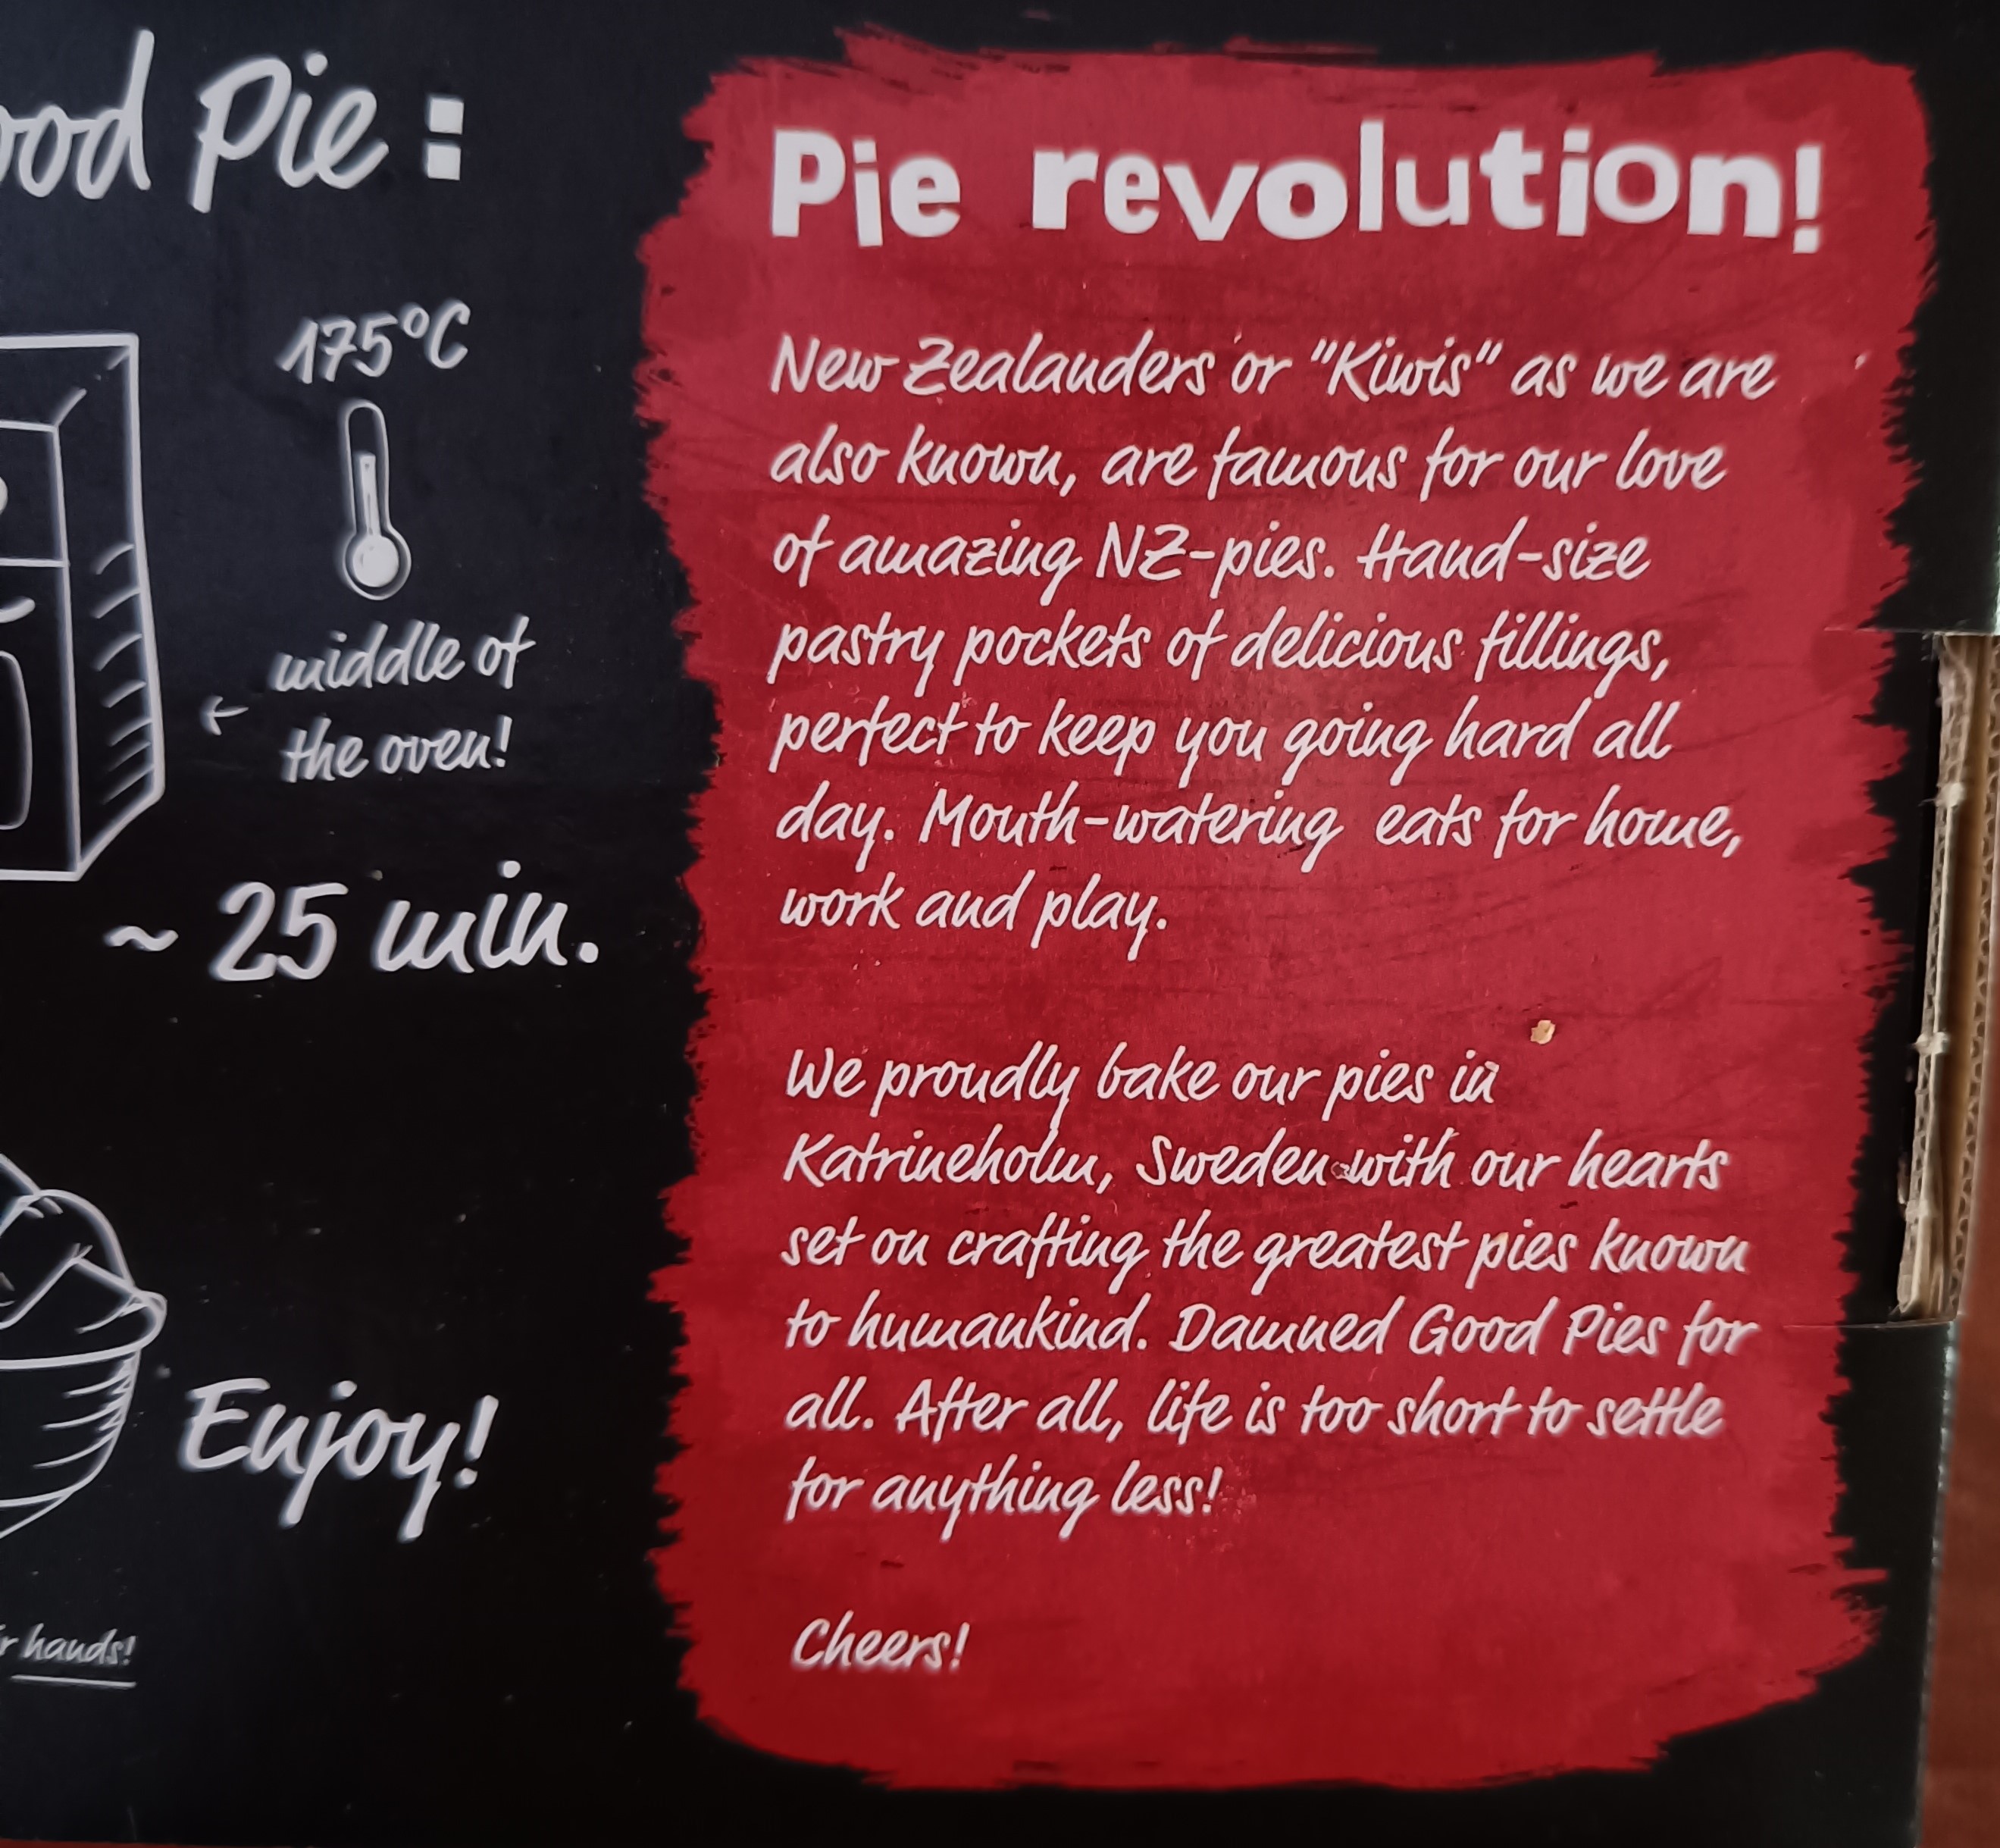 Pie :
175°C
middle of
the oven!
~ 25 min.
Enjoy!
hands!
Pie revolution!
New Zealanders or "Kiwis" as we are
also known, are famous for our love
of amazing NZ-pies. Hand-size
pastry pockets of delicious fillings,
perfect to keep you going hard all
day. Mouth-watering eats for home,
work and play.
We proudly bake our pies in
Katrineholm, Sweden with our hearts
set on crafting the greatest pies known
to humankind. Damned Good Pies for
all. After all, life is too short to settle
for anything less!
Cheers!